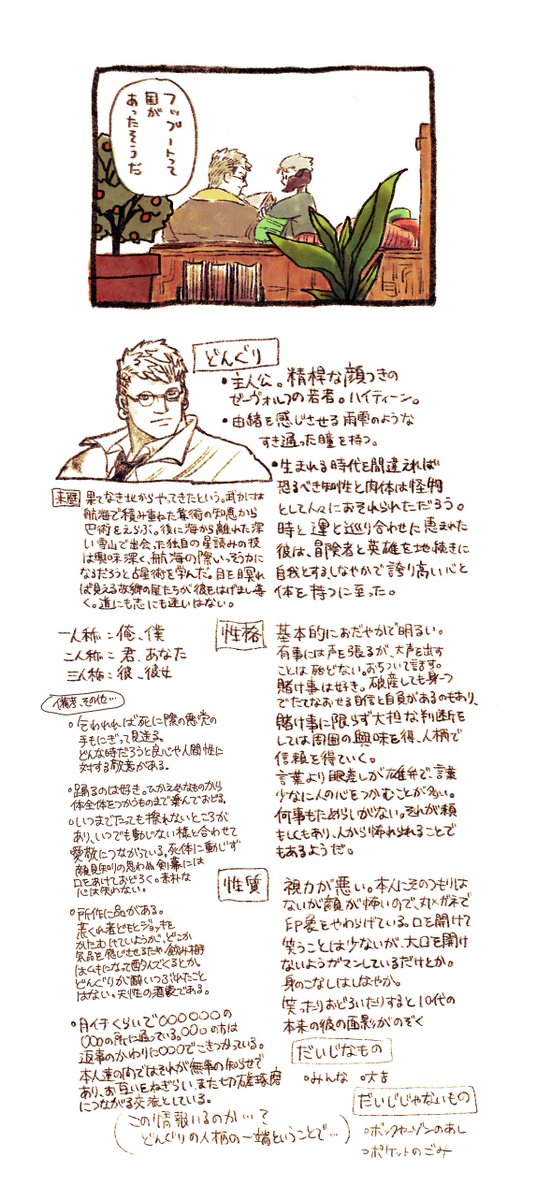 フップートって
国が
あったそうだ
どんぐり
•主人公。精悍な顔つきの
ゼーヴォルフの若者。ハイティーン。
•由緒を感じさせる雨雫のような
すき通った瞳を持つ。
•生まれる時代を間違えれば
恐るべき知性と肉体は怪物
として人々におそれられただろう。
時と運と巡り合わせに恵まれた
彼は、冒険者と英雄を地続きに
自我とする、しなやかで誇り高い心と
体を持つに至った。
来歴
果てなき北からやってきたという。武力には
航海で積み重ねた算術の知恵から
巴術をえらぶ。後に海から離れた深
い雪山で出会った独自の星読みの技
は興味深く、航海の際いっそう力に
なるだろうと占星術を学んだ。目を瞑れ
ば見える故郷の星たちが彼をはげまし導
く。道にも志にも迷いはない。
一人称：俺、僕
二人称：君、あなた
三人称：彼、彼女
性格
基本的におだやかで明るい。
有事には声を張るが、大声を出す
ことは殆どない。おちついて話す。
賭け事は好き。破産しても身一つ
でたてなおせる自信と自負があるのもあり、
賭け事に限らず大胆な判断を
しては周囲の興味を得、人柄で
信頼を得ていく。
言葉より眼差しが雄弁で、言葉
少なに人の心をつかむことが多い。
何事もためらいがない。それが頼
もしくもあり、人から怖れられることで
もあるようだ。
備考、その他…
○乞われれば死に際の悪党の
手もにぎって見送る。
どんな時だろうと良心や人間性に
対する敬意がある。
○踊るのは好き。ひかえめなものから
体全体をつかうものまで喜んでおどる。
○いつまでたっても擦れないところが
あり、いつでも動じない様と合わせて
愛敬につながっている。死体に動じず
顔見知りの思わぬ剣幕には
口をあけておどろく。素朴な
心は失わない。
○所作に品がある。
悪くれ者どもとジョッキを
かたむけていようが、どこか
気品を感じさせるため、飲み相手
はムキになって酌んでくるとか。
どんぐりが酔いつぶれたこと
はない。天性の酒豪である。
○月イチくらいで○○○○○○の
○○○の所に通っている。○○○の方は
返事のかわりに○○○でこきつかっている。
本人達の間ではそれが無事の知らせで
あり、お互いをねぎらい、また切磋琢磨
につながる交流としている。
（この情報いるのか…って
どんぐりの人柄の一端ということで…）
性質
視力が悪い。本人にそのつもりは
ないが顔が怖いので、丸メガネで
印象をやわらげている。口を開けて
笑うことは少ないが、大口を開け
ないようガマンしているだけとか。
身のこなしはしなやか。
笑ったりおどろいたりすると10代の
本来の彼の面影がのぞく
だいじなもの
○みんな ○大吉
だいじじゃないもの
○ボックャーゾンのあし
○ポケットのごみ